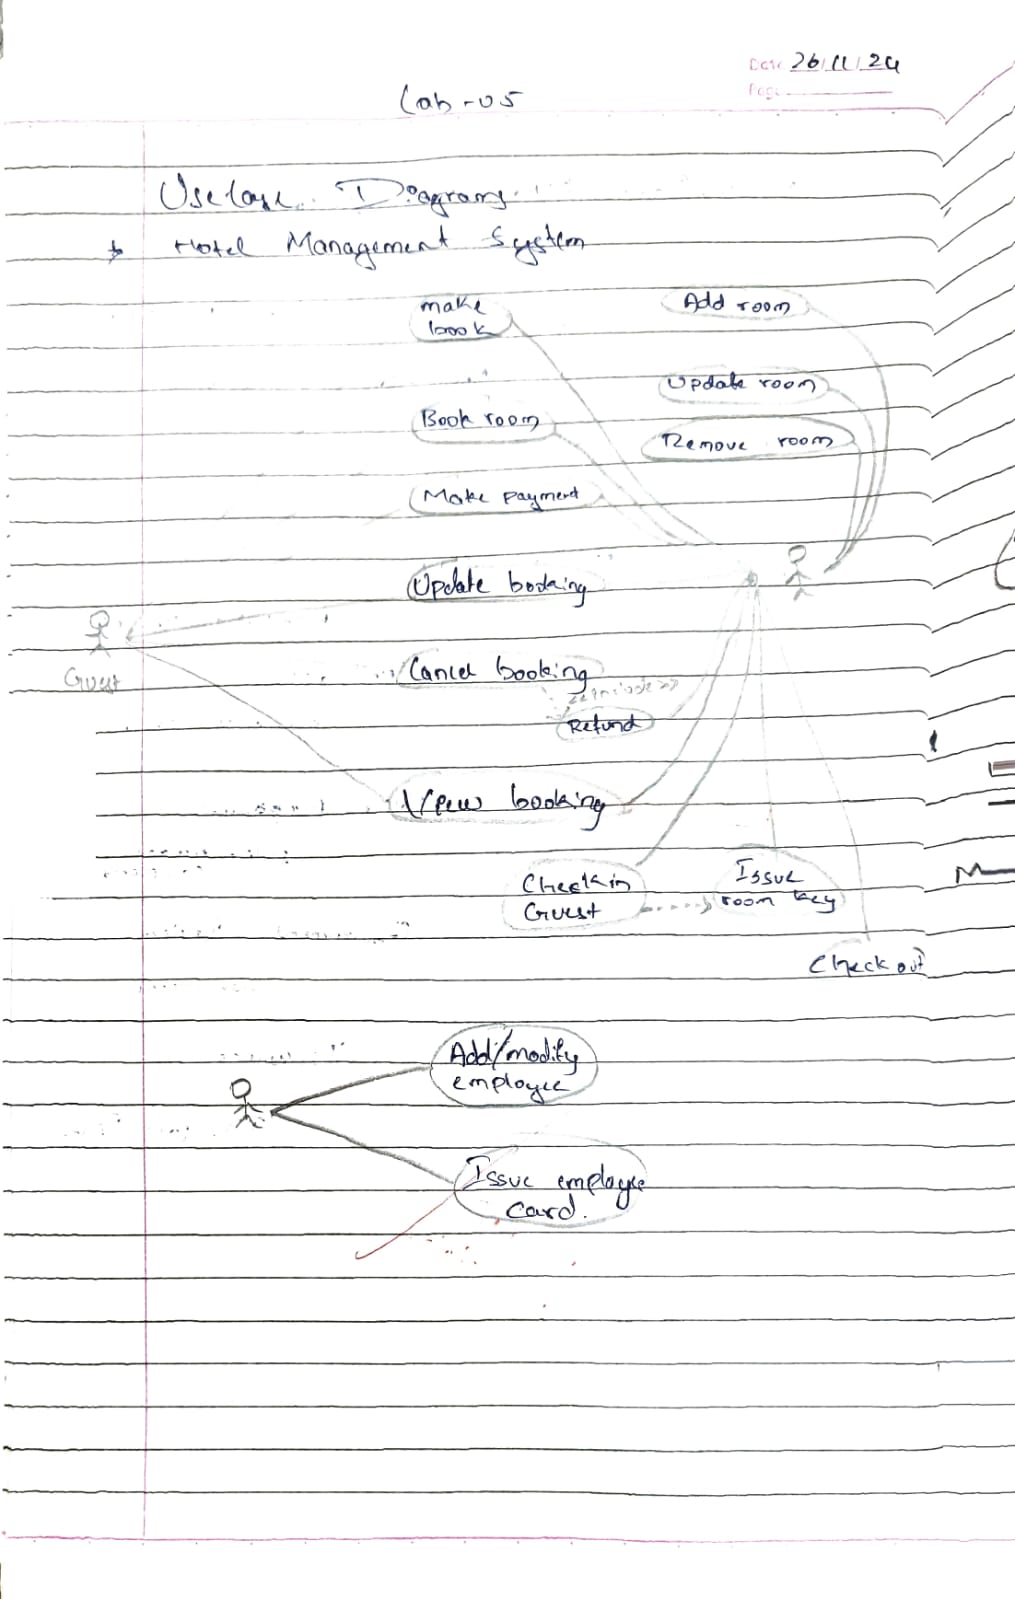 Date 26/11/24
Page
Lab-05
Usecase Diagrams
Hotel Management System
make
book
Add room
Update room
Book room
Remove room
Make payment
Update booking
Guest
Cancel booking
<<include>>
Refund
View booking
Check in
Guest
Issue
room key
Check out
Add/modify
employee
Issue employee
card.